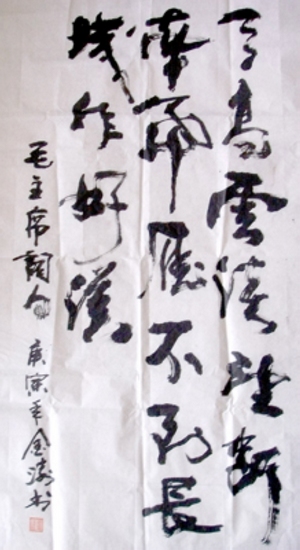 天高雲淡望斷
南飛雁不到長
城非好漢
毛主席詞
庚寅年金书